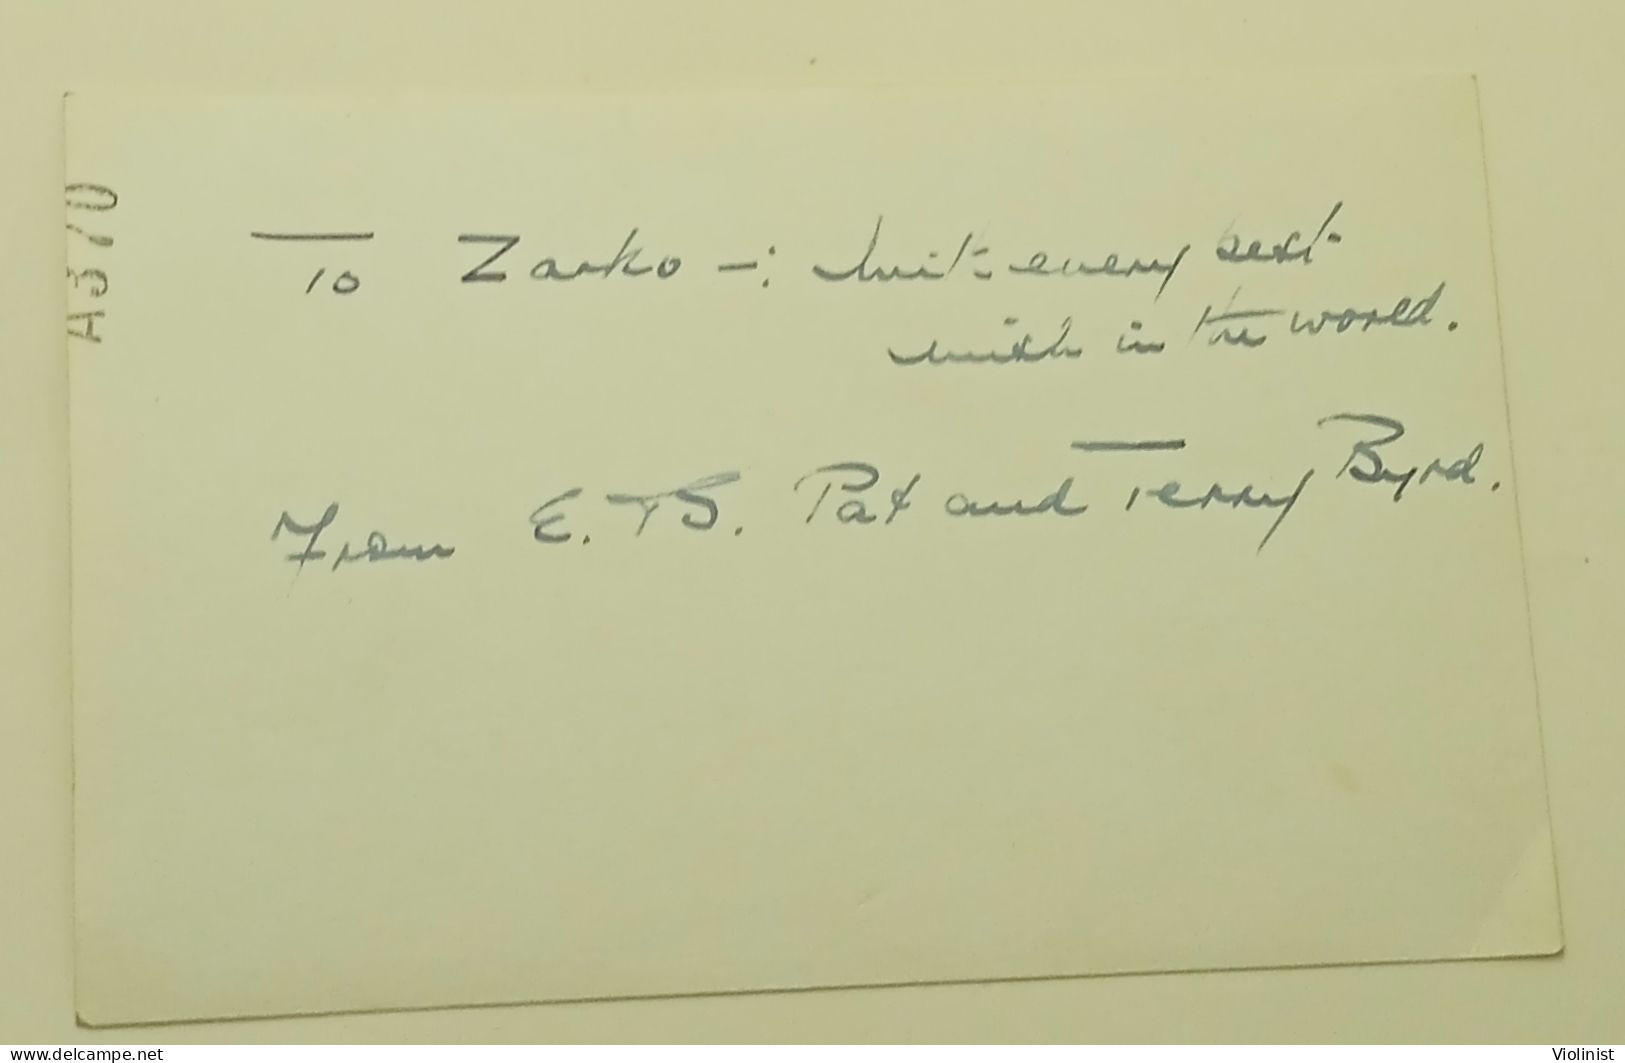 A370
To Zarko –: With every best
wish in the world.
From E. T S. Pat and Terry Byrd.
www.delcampe.net
Violinist